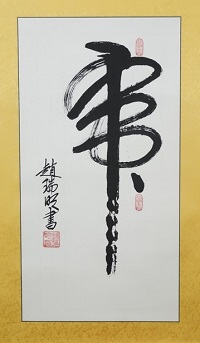 虎
趙瑞明書